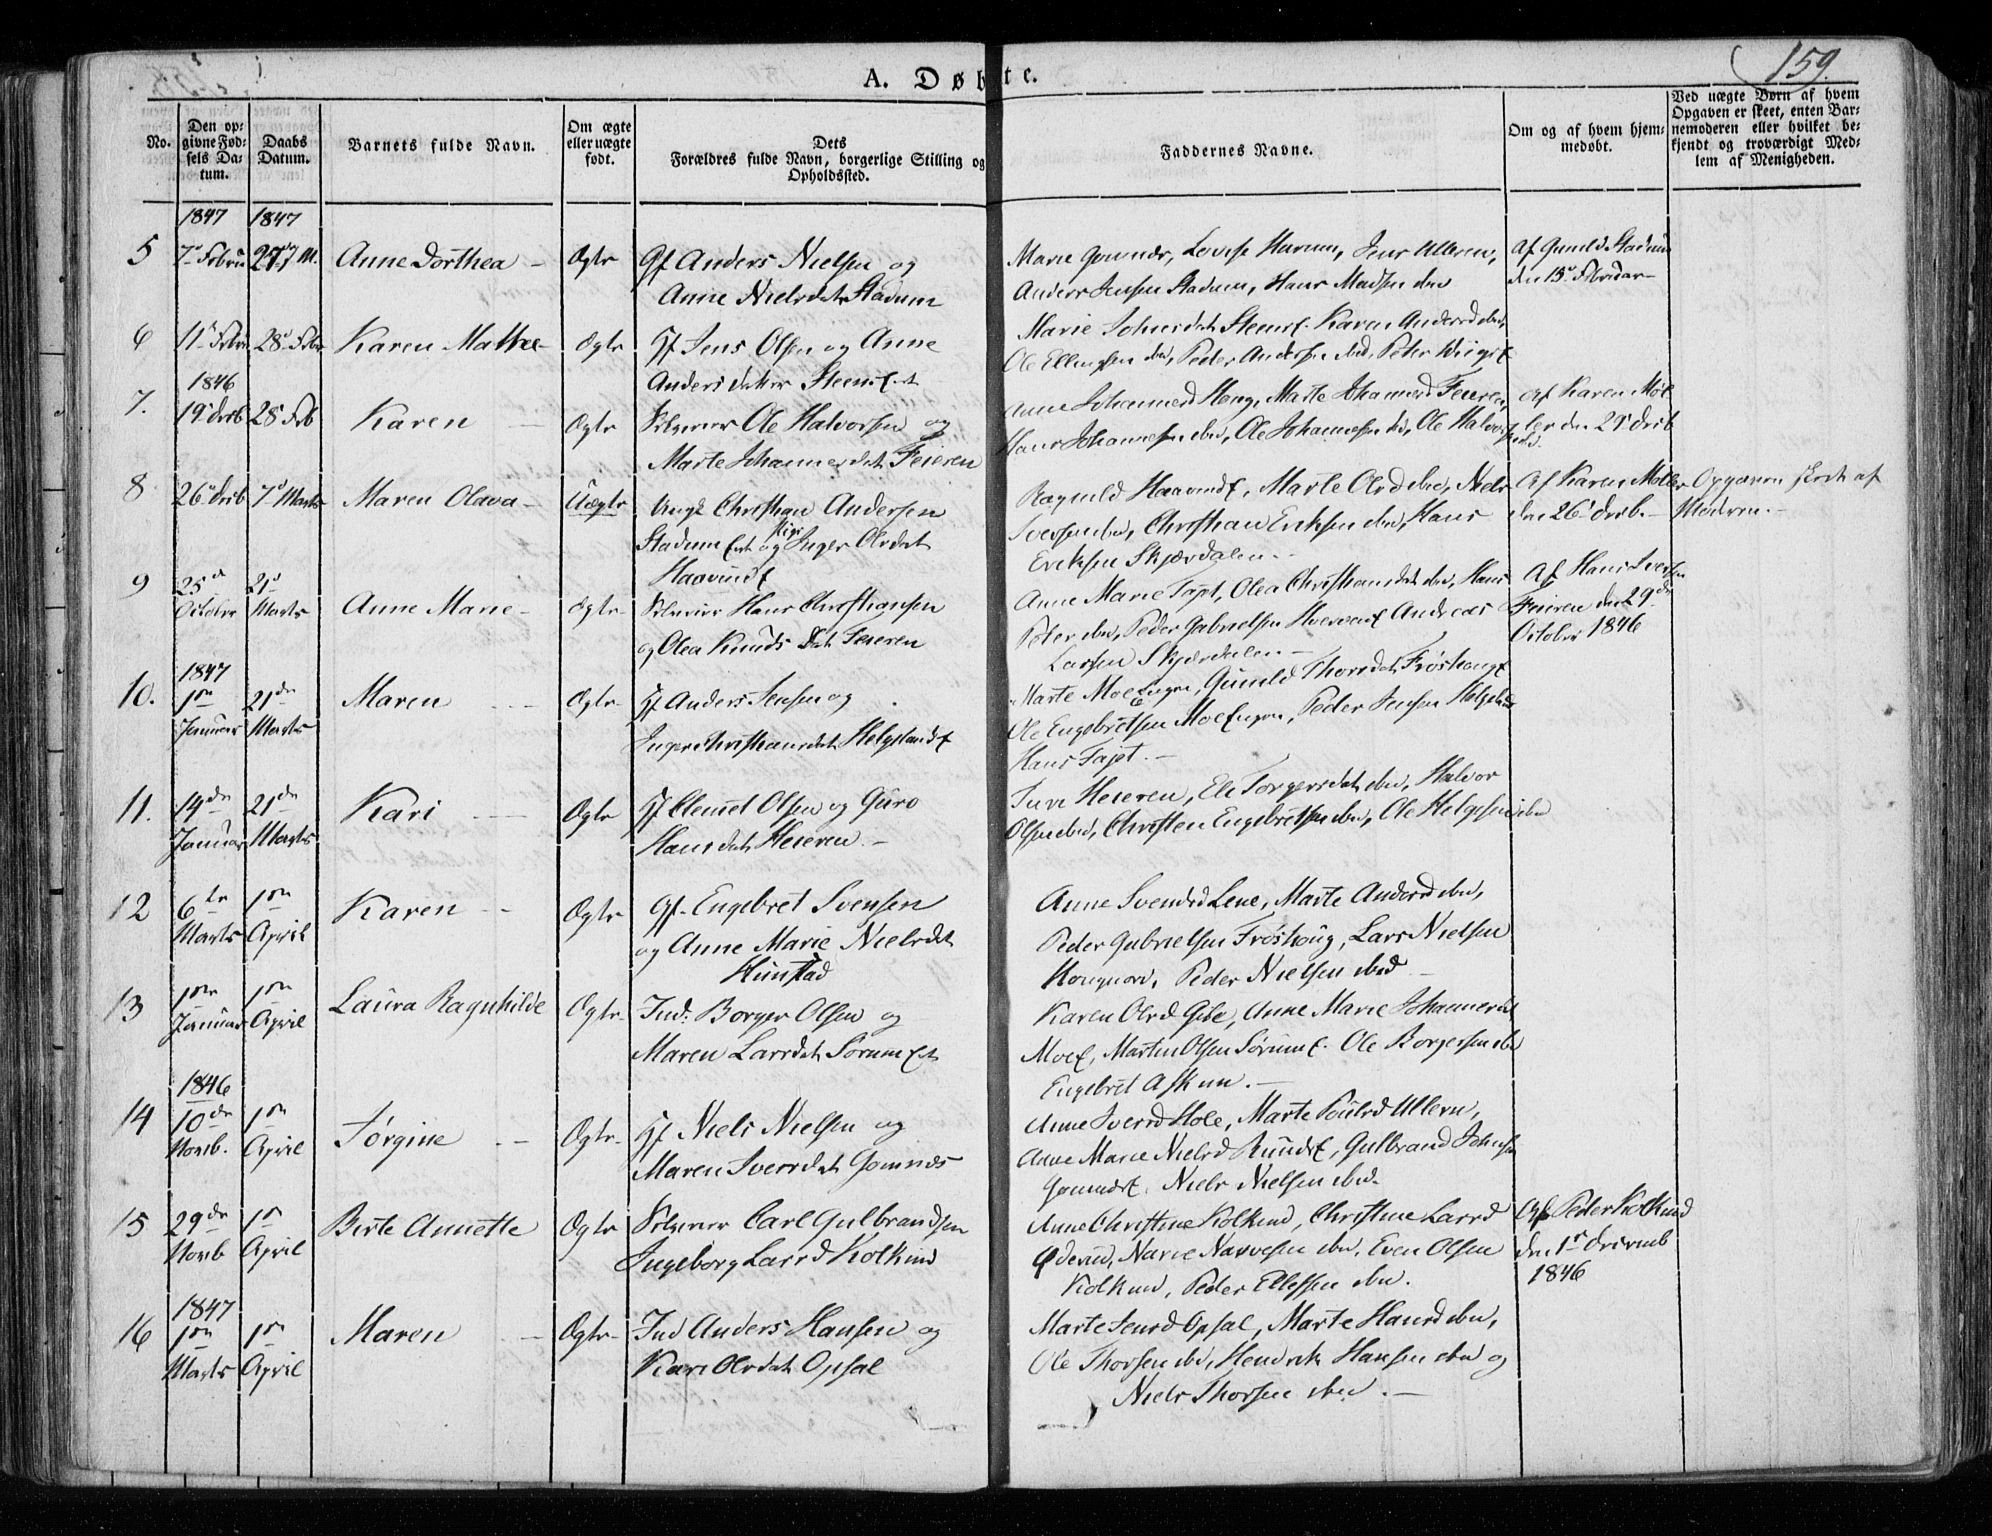 159.
A. Døbte.
No.
Den op-
givne Fød-
sels Da-
tum.
Daabs
Datum.
Barnets fulde Navn.
Om ægte
eller uægte
født.
Dets
Forældres fulde Navn, borgerlige Stilling og
Opholdssted.
Faddernes Navne.
Om og af hvem hjem-
medøbt.
Ved uægte Børn af hvem
Opgaven er skeet, enten Bar-
nemoderen eller hvilket be-
kjendt og troværdigt Med-
lem af Menigheden.
1847 1847
5 7 Febru Anne Dorthea Ægte Gf Anders Nielsen og
Anne Nielsdat Stadum
Marie Gomnæs, Lovise Harum, Jens Ulleren,
Anders Jensen Stadum, Hans Madsen ibd
Af Gunild Stadum
den 13 Februar
6 11 Febr 28 Febr Karen Mathea Ægte Hf Jens Olsen og Anne
Andersdatter
Marie Johnsdat Karen Andersd ibd,
Ole Ellingsen ibd, Peder Andersen ibd, Peter
1846
7. 19 Decb 28 Feb Karen Ægte Selveier Ole Halvorsen og
Marte Johannesdat Feieren
Anne Johannesd Haug, Marte Johannesd Feieren,
Hans Johannesen ibd, Ole Johannesen ibd, Ole Halvorsen ibd.
Af Karen Møl
ler den 29 Decb
8 26 Decb 7 Marts Maren Olava Uægte Ungk Christian Andersen
Stadum og Pige Inger Olsdat
Haavind
Ragnild Haavind, Marte Olsd ibd, Niels
Iversen ibd, Christian Eriksen ibd, Hans
Eriksen Skjærdalen
Af Karen Møller
den 26 Decb.
Opgaven skeet af
Moderen.
9 25 October 21 Marts Anne Marie Ægte Selveier Hans Christiansen
og Olea Knuds Dat Feieren
Anne Marie Fajet, Olea Christiansdat ibd, Hans
Peter ibd, Peder Gabrielsen Andreas
Larsen Skjærdalen
Af Hans Iversen
Feieren den 29de
October 1846
1847
10. 1ste Januar 21de Marts Maren Ægte Hf Anders Jensen og
Inger Christiansdat Helgeland
Marte Moe, Gunild Thorsdat Frøshaug
Ole Engebretsen Moe, Peder Jensen Helgeland
Hans Fajet.
11. 14de Januar 21de Marts Kari Ægte Hf Clemet Olsen og Guro
Hansdat Heieren
Heieren, Eli Torgersdat ibd, Halvor
Olsen ibd, Christen Engebretsen ibd, Ole Helgesen ibd
12 6te Marts 1ste April Karen Ægte Gf. Engebret Svensen
og Anne Marie Nielsdat
Hunstad
Anne Svendsd Lene, Marte Andersd ibd,
Peder Gabrielsen Frøshoug, Lars Nielsen
Peder Nielsen ibd
13 1ste Januar 1ste April Laura Ragnhilde Ægte Ind: Borger Olsen og
Maren Larsdat Sørum
Karen Olsd Gile, Anne Marie Johannesd
Moe, Martin Olsen Sørum. Ole Borgersen ibd
Engebret Asken.
1846
14 10de Novb. 1ste April Jørgine Ægte Hf Niels Nielsen og
Maren Iversdat Gomnæs
Anne Iversd Hole, Marte Poulsd Ullern,
Anne Marie Nielsd Rund, Gulbrand Johnsen
Gomnæs, Niels Nielsen ibd.
15 29de Novb 1ste April Berte Annette Ægte Selveier Carl Gulbrandsen
Ingeborg Larsd Kolkind
Anne Christine Kolkind, Christine Larsd
Øderud, Narve Narvesen ibd, Even Olsen
Kolkind, Peder Ellefsen ibd.
Af Peder Kolkind
den 1ste Decemb
1846
1847
16 1ste Marts 1ste April Maren Ægte Ind Anders Hansen og
Kari Olsdat Opsal
Marte Jensd Opsal, Marte Hansd ibd,
Ole Thorsen ibd, Hendrik Hansen ibd og
Niels Thorsen ibd.